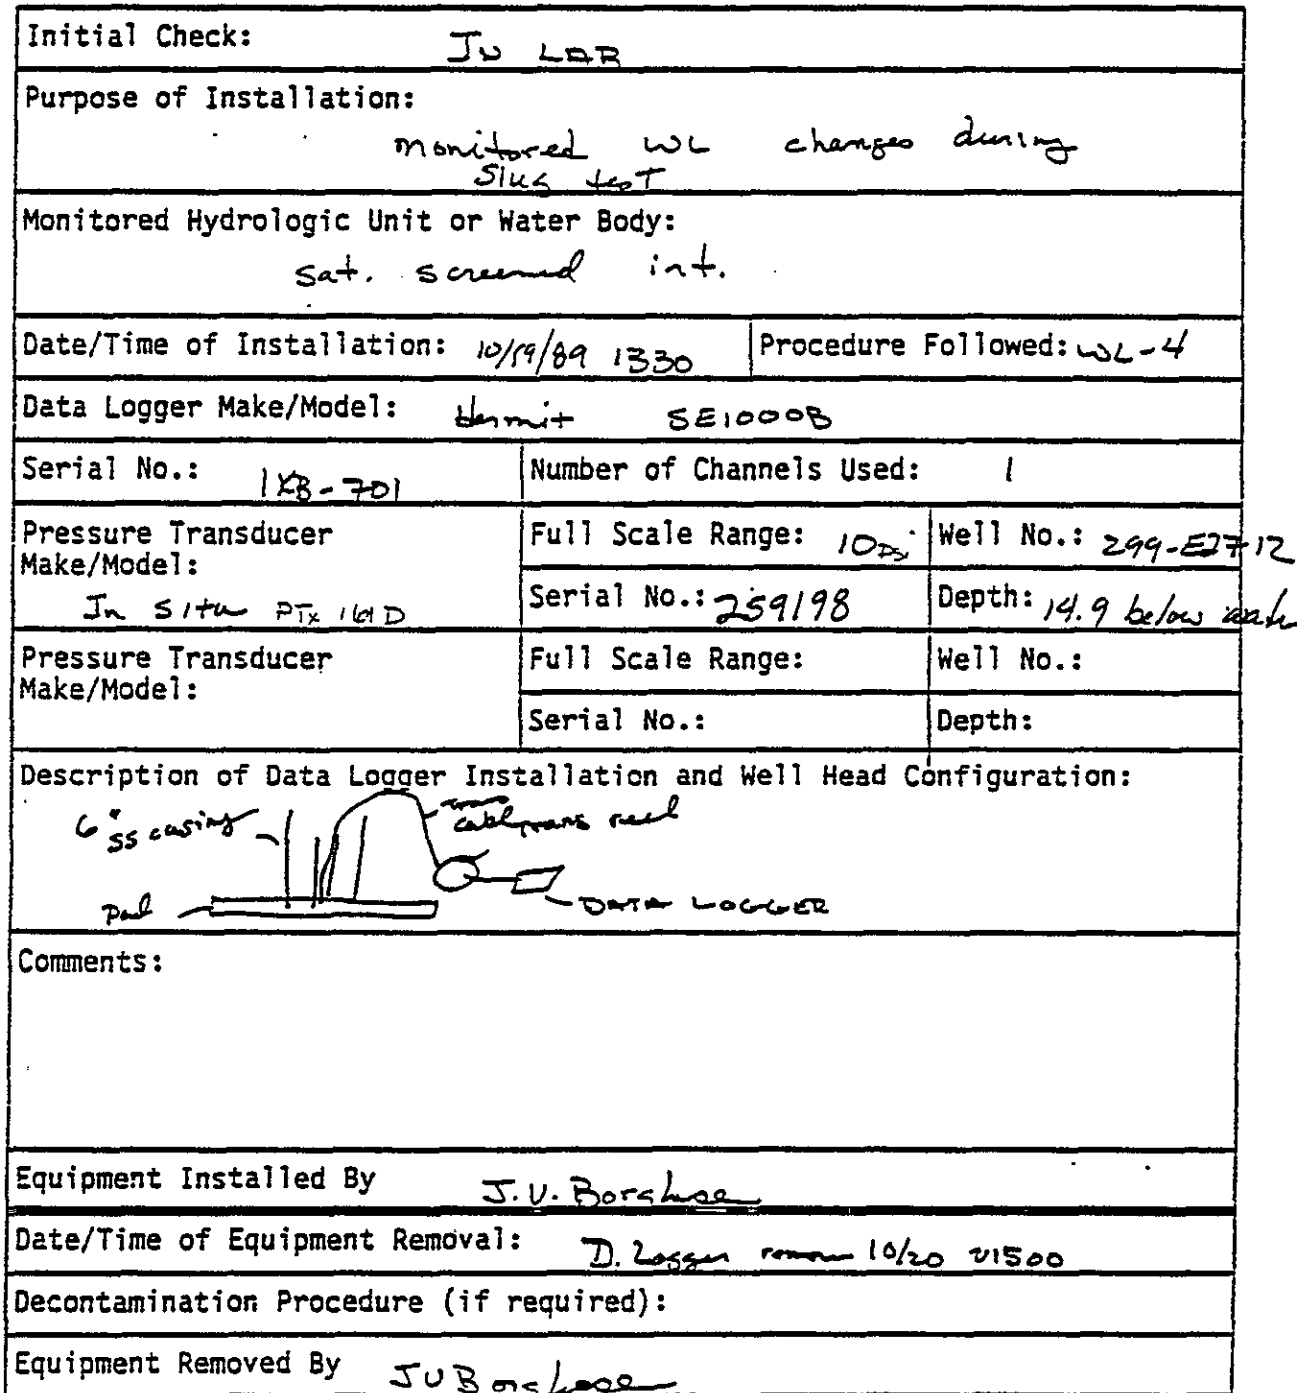 Initial Check: JV LAB
Purpose of Installation:
monitored WL changes during
Slug test
Monitored Hydrologic Unit or Water Body:
Sat. screened int.
Date/Time of Installation: 10/19/89 1330 Procedure Followed: WL-4
Data Logger Make/Model: Hermit SE1000B
Serial No.: 1KB-701 Number of Channels Used: 1
Pressure Transducer
Make/Model:
In Situ PTX 161D
Full Scale Range: 10 psi Well No.: 299-E27-12
Serial No.: 259198 Depth: 14.9 below water
Pressure Transducer
Make/Model:
Full Scale Range: Well No.:
Serial No.: Depth:
Description of Data Logger Installation and Well Head Configuration:
6" SS casing
trans reel
Pad
DATA LOGGER
Comments:
Equipment Installed By J.V. Borghese
Date/Time of Equipment Removal: D. Logger 10/20 1500
Decontamination Procedure (if required):
Equipment Removed By JV Borghese